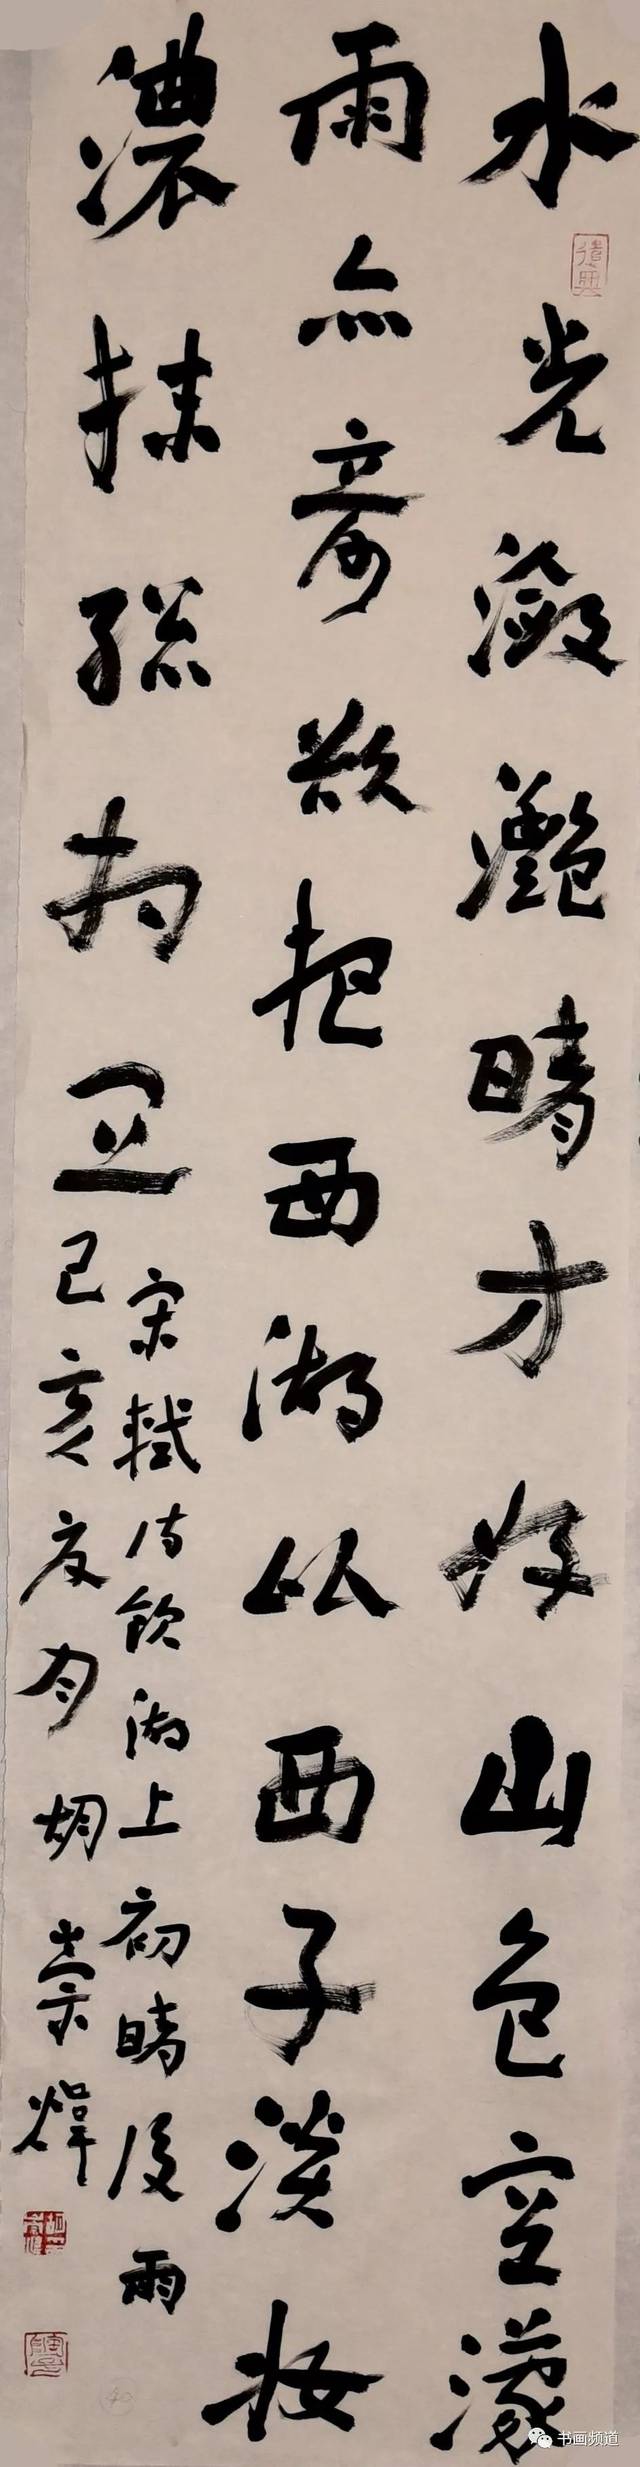 水光瀲灩晴方好山色空濛
雨亦奇欲把西湖比西子淡妆
濃抹總相宜
宋軾诗飲湖上初晴後雨
己亥夏月胡崇煒
书画频道